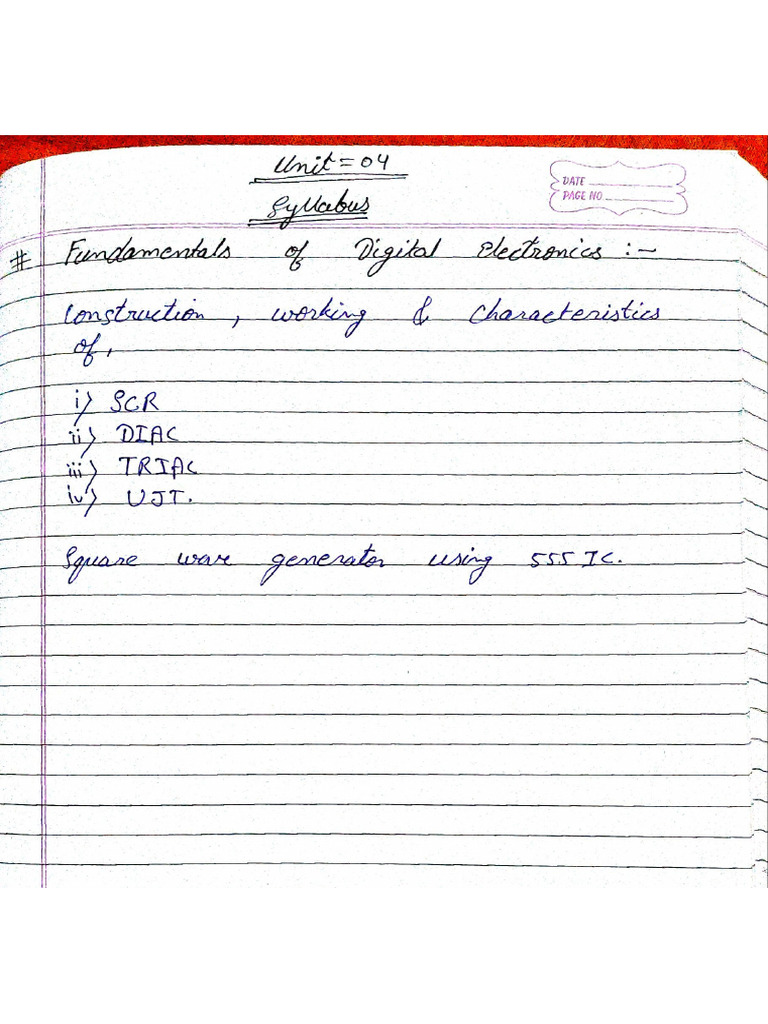 Unit = 04
Syllabus
DATE
PAGE NO.
# Fundamentals of Digital Electronics :-
Construction, working & Characteristics
of,
i) SCR
ii) DIAC
iii) TRIAC
iv) UJT.
Square wave generator using 555 IC.